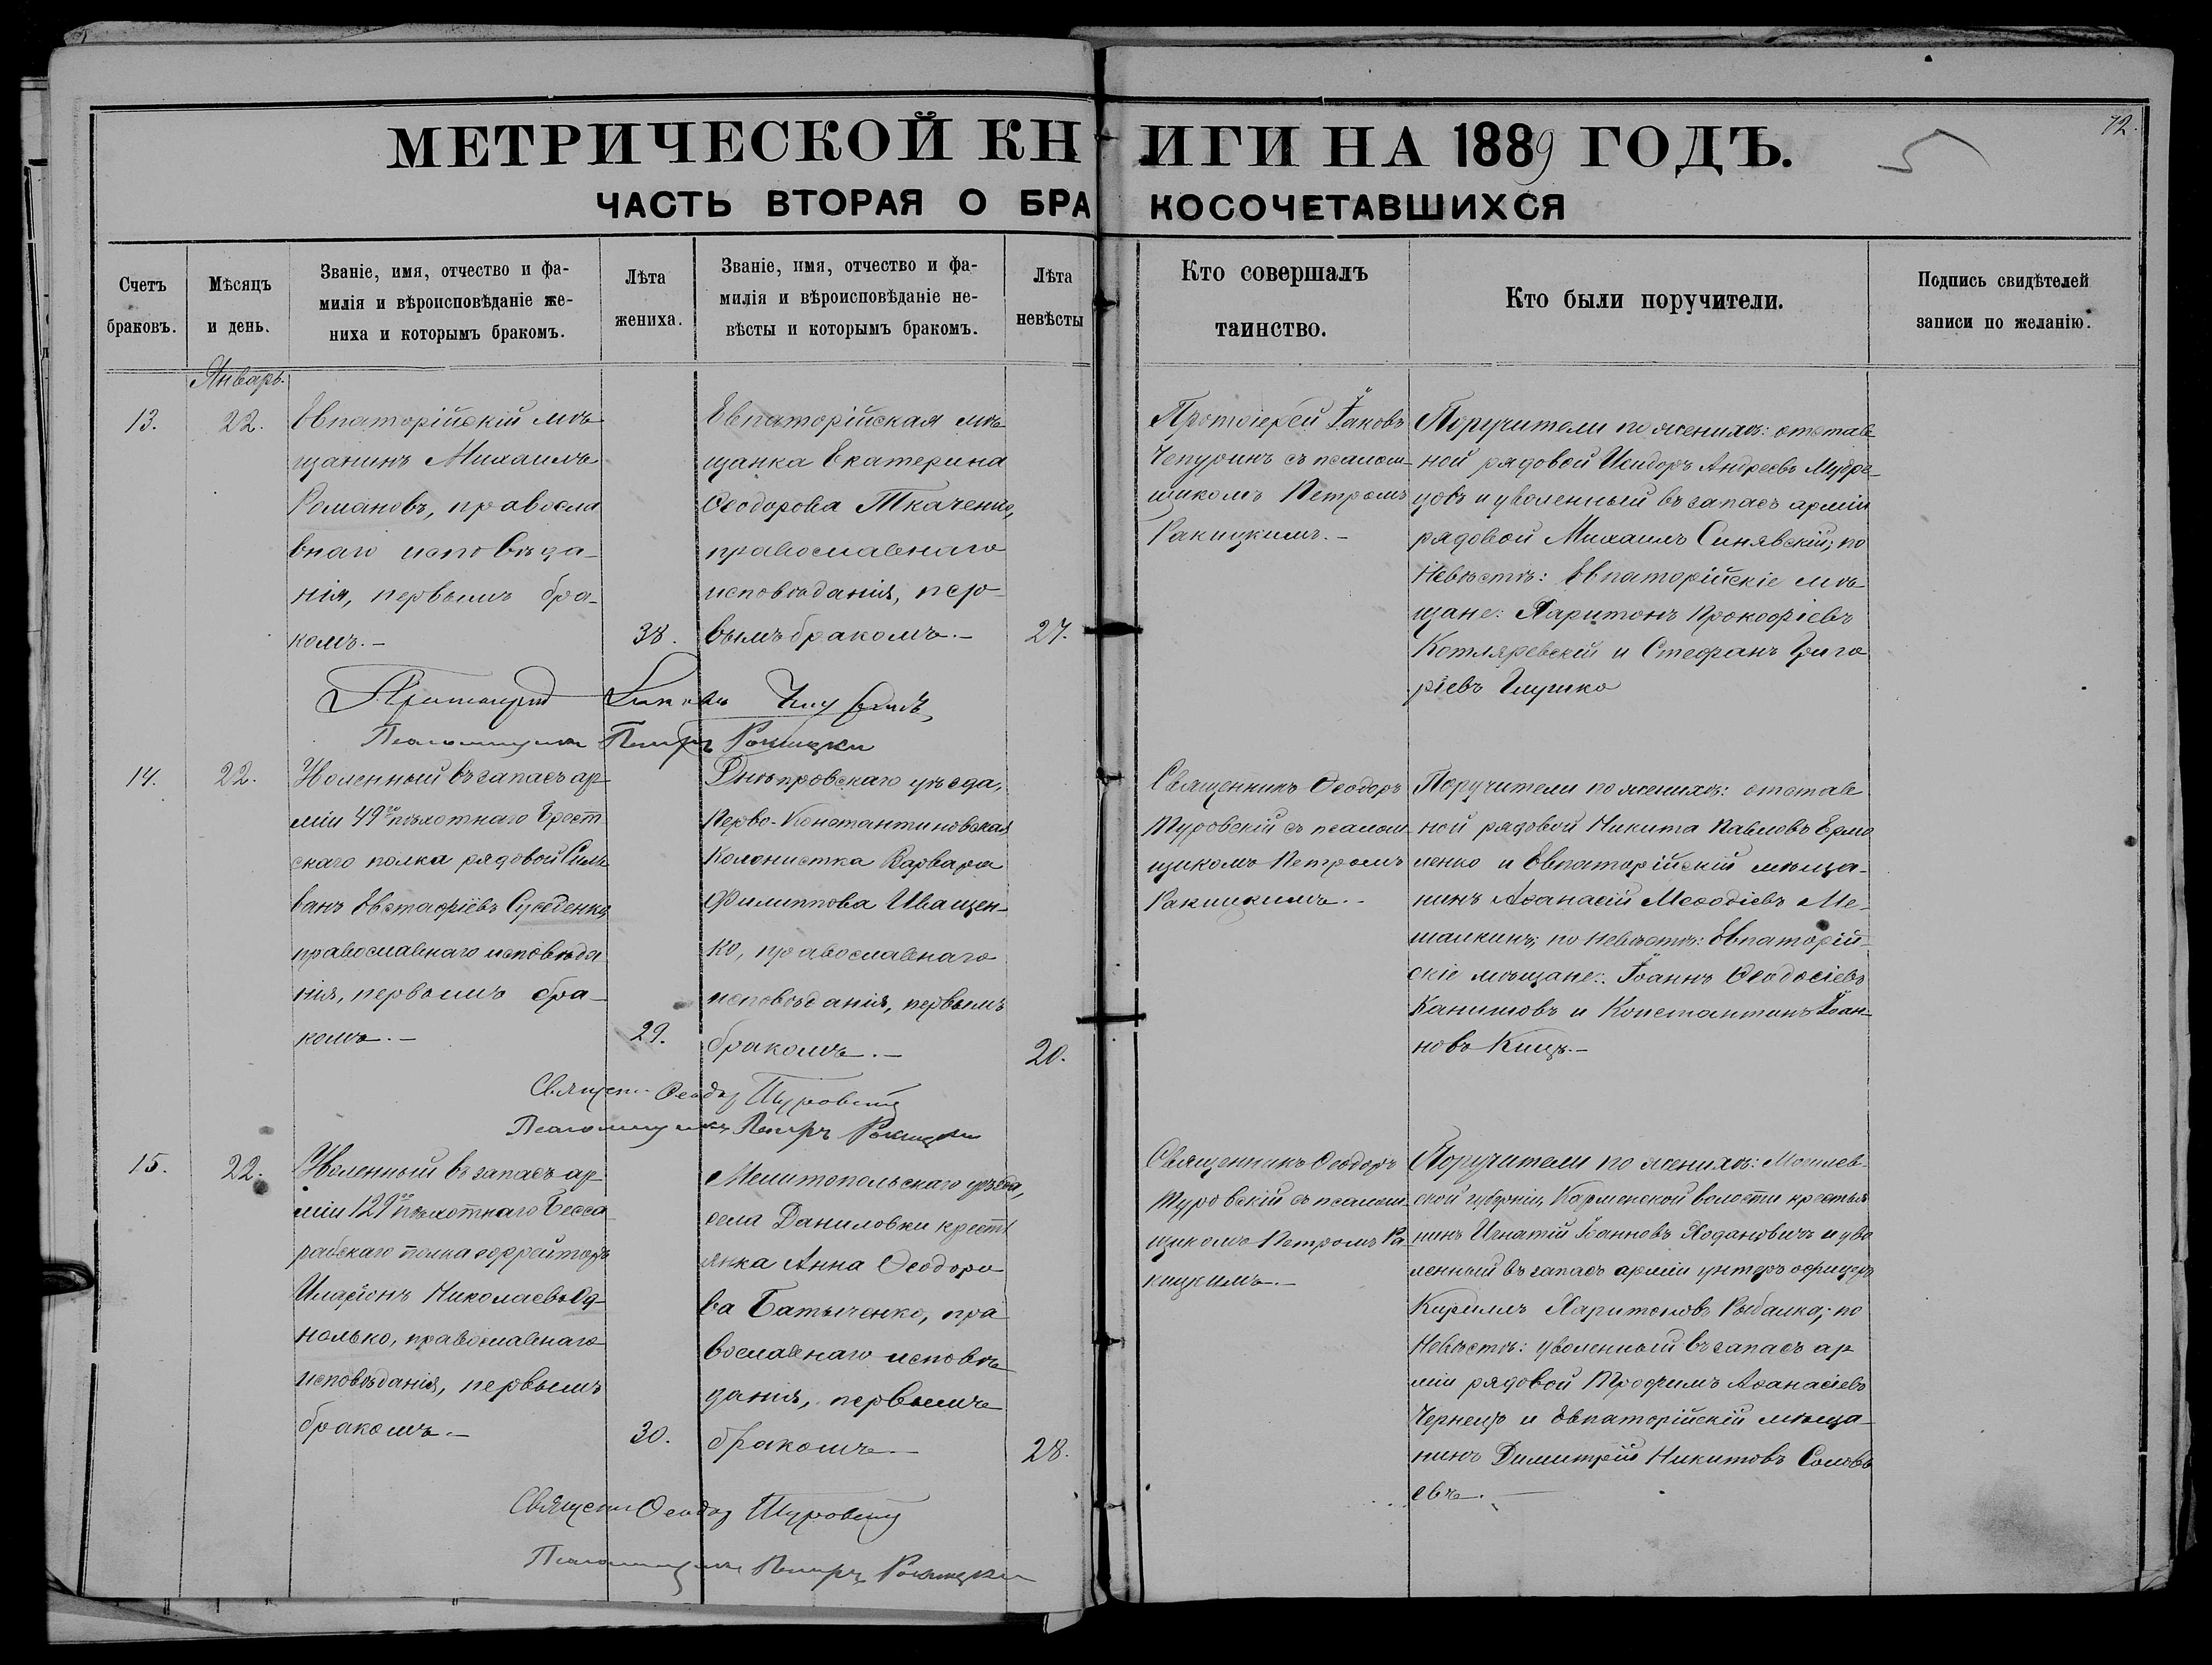 72.
МЕТРИЧЕСКОЙ КНИГИ НА 1889 ГОДЪ.
ЧАСТЬ ВТОРАЯ О БРАКОСОЧЕТАВШИХСЯ
Счетъ
браковъ.
Мѣсяцъ
и день.
Званіе, имя, отчество и фа-
милія и вѣроисповѣданіе же-
ниха и которымъ бракомъ.
Лѣта
жениха.
Званіе, имя, отчество и фа-
милія и вѣроисповѣданіе не-
вѣсты и которымъ бракомъ.
Лѣта
невѣсты
Кто совершалъ
таинство.
Кто были поручители.
Подпись свидѣтелей
записи по желанію.
Январь.
13.
22.
Евпаторійскій мѣ
щанинъ Михаилъ
Романовъ, правосла
внаго исповѣда-
нія, первымъ бра-
комъ.-
38.
Евпаторійская мѣ
щанка Екатерина
Ѳеодорова Ткаченко,
православнаго
исповѣданія, пер-
вымъ бракомъ.-
27.
Протоіерей Іаковъ
Чепуринъ съ псалом-
щикомъ Петромъ
Ракицкимъ.-
Поручители по женихѣ: отстав
ной рядовой Исидоръ Андреевъ Мудре-
цовъ и уволенный въ запасъ арміи
рядовой Михаилъ Синявскій; по
Невѣстѣ: Евпаторійскіе мѣ-
щане: Харитонъ Прокофіевъ
Котляревскій и Стефанъ Григо
ріевъ Глушко
Протоіерей Іаковъ Чепуринъ
Псаломщикъ Петръ Ракицкій
14.
22.
Уволенный въ запасъ ар
міи 49го пѣхотнаго Брест
скаго полка рядовой Силь
ванъ Евстафіевъ
православнаго исповѣда
нія, первымъ бра-
комъ.-
29.
Днѣпровскаго уѣзда,
Перво-Константиновская
Колонистка Варвара
Филиппова Иващен-
ко, православнаго
исповѣданія, первымъ
бракомъ.-
20.
Священникъ Ѳеодоръ
Туровскій съ псалом
щикомъ Петромъ
Ракицкимъ.-
Поручители по женихѣ: отстав
ной рядовой Никита Павловъ Ермо
ленко и Евпаторійскій мѣща-
нинъ Аѳанасій Меѳодіевъ Ме-
шалкинъ; по невѣстѣ: Евпаторій-
скіе мѣщане: Іоаннъ Ѳеодосіевъ
Канишовъ и Константинъ Іоан-
новъ
Священ. Ѳеодоръ Туровскій
Псаломщикъ Петръ Ракицкій
15.
22.
Уволенный въ запасъ ар
міи 129го пѣхотнаго Бесса
рабскаго полка ефрейторъ
Иларіонъ Николаевъ Од-
нолько, православнаго
исповѣданія, первымъ
бракомъ.-
30.
Мелитопольскаго уѣзда,
села Даниловки кресть
янка Анна Ѳеодоро
ва Батыченко, пра
вославнаго исповѣ
данія, первымъ
бракомъ.-
28.
Священникъ Ѳеодоръ
Туровскій съ псалом-
щикомъ Петромъ Ра
кицкимъ.-
Поручители по женихѣ: Могилев-
ской губерніи, Корменской волости крестья
нинъ Игнатій Іоанновъ Ходановичъ и уво
ленный въ запасъ арміи унтеръ офицеръ
Кириллъ Харитоновъ Рыбалка; по
Невѣстѣ: уволенный въ запасъ ар
міи рядовой Трофимъ Аѳанасіевъ
и Евпаторійскій мѣща-
нинъ Димитрій Никитовъ Соловь
евъ.
Священ. Ѳеодоръ Туровскій
Псаломщикъ Петръ Ракицкій